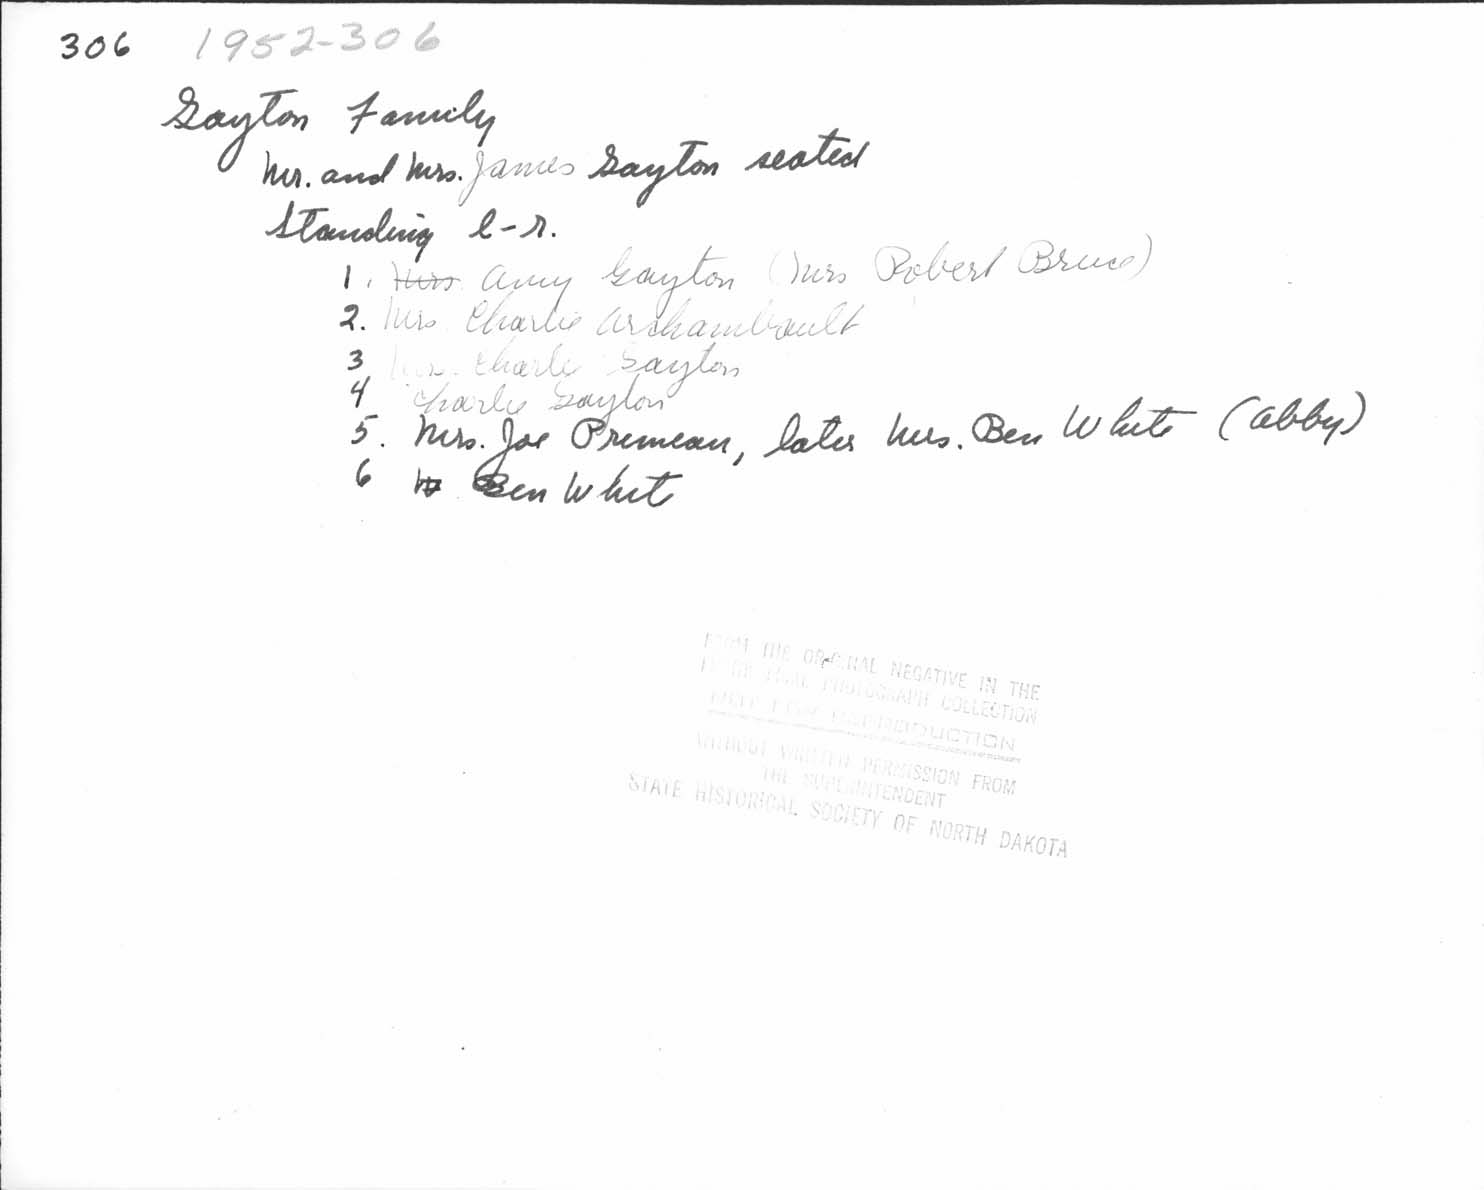 306 1952-306
Gayton Family
Mr. and Mrs. James Gayton seated
Standing l-r.
1. Mrs Amy Gayton (Mrs Robert Bruce)
2. Mrs Charlie Archambault
3 Mrs. Charlie Gayton
4 Charlie Gayton
5. Mrs. Joe Primeau, later Mrs. Ben White (Abby)
6 Ben White
FROM THE ORIGINAL NEGATIVE IN THE
PHOTOGRAPH COLLECTION
NOT FOR REPRODUCTION
WITHOUT WRITTEN PERMISSION FROM
THE SUPERINTENDENT
STATE HISTORICAL SOCIETY OF NORTH DAKOTA